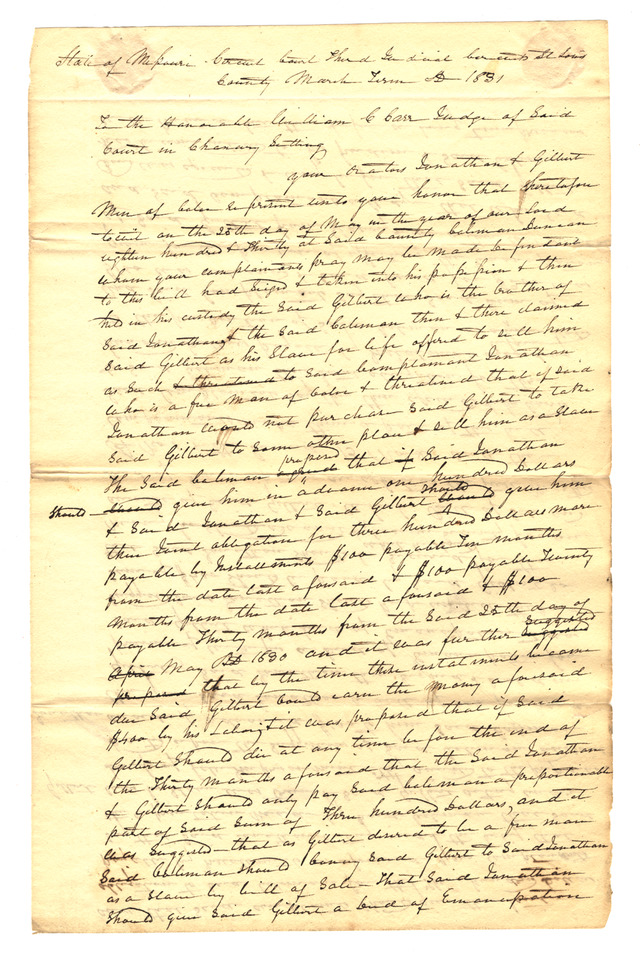 State of Missouri Circuit Court Third Judicial Circuit St Louis
County March Term AD 1831
To the Honorable William C Carr Judge of Said
Court in Chancery Sitting
your orators Jonathan & Gilbert
Men of Color represent unto your honor that heretofore
towit on the 25th day of May in the year of our Lord
eighteen hundred & Thirty at Said County Coleman Duncan
whom your complainants pray may be made a
to this bill had Seized & taken into his possession & then
held in his custody the Said Gilbert who is the brother of
Said Jonathan & the Said Coleman then & there claimed
Said Gilbert as his Slave for life offered to sell him
as Such & threatened to Said Complainant Jonathan
who is a free Man of Color & threatened that if Said
Jonathan would not purchase Said Gilbert to take
Said Gilbert to Some other place & sell him as a Slave
The Said Coleman agreed proposed that if Said Jonathan
Should Should give him in advance one hundred Dollars
& Said Jonathan & Said Gilbert should give him
their Joint obligation for three hundred Dollars more
payable by Instalments $100 payable Ten months
from the date last aforesaid & $100 payable Twenty
Months from the date last aforesaid & $100
payable Thirty months from the Said 25th day of
April May AD 1830 and it was further suggested suggested
proposed that by the time these instalments became
due Said Gilbert could earn the money aforesaid
$400 by his Labor & it was proposed that if Said
Gilbert Should die at any time before the end of
the Thirty Months aforesaid that the Said Jonathan
& Gilbert Should only pay Said Coleman a proportionable
part of Said Sum of Three hundred Dollars, and it
was Suggested that as Gilbert desired to be a free man
Said Coleman Should convey Said Gilbert to Said Jonathan
as a Slave by bill of Sale – That Said Jonathan
Should give Said Gilbert a deed of Emancipation